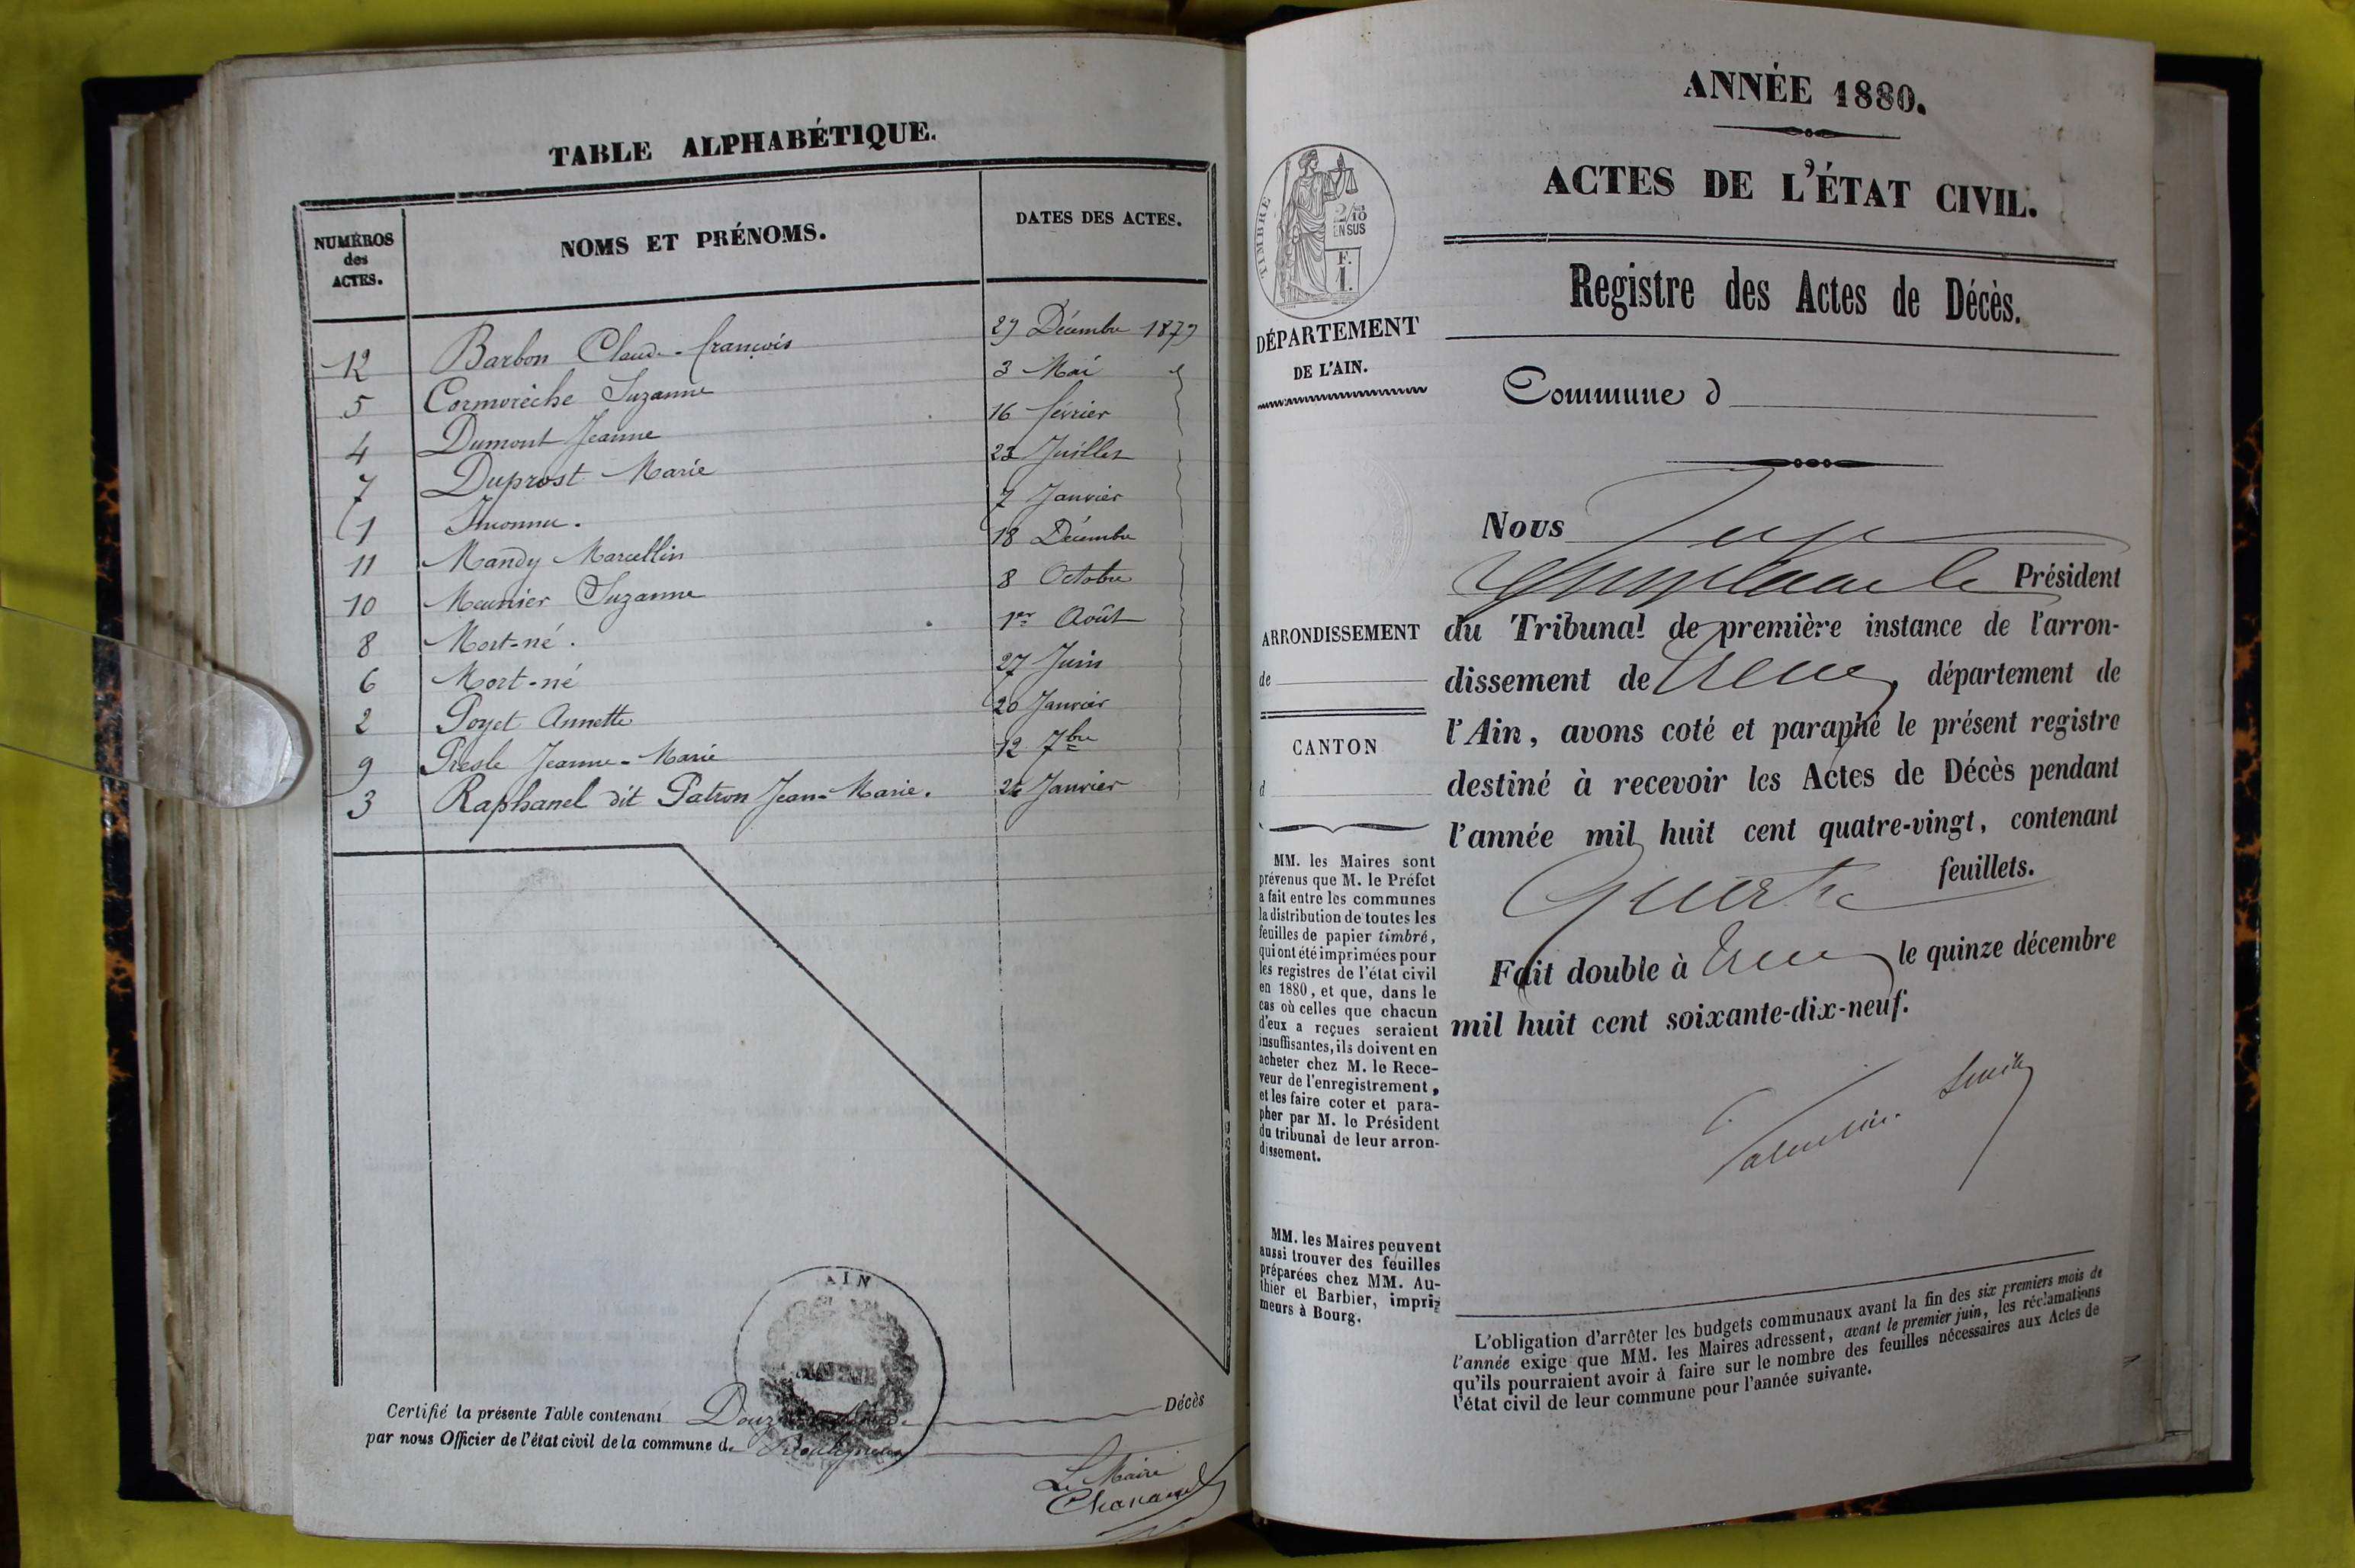 TABLE ALPHABÉTIQUE.
NUMÉROS
des
ACTES.
NOMS ET PRÉNOMS.
DATES DES ACTES.
12 Barbon Claude-françois 29 Décembre 1879
5 Cormorèche Suzanne 3 Mai
4 Dumont Jeanne 16 février
7 Duprost Marie 23 Juillet
1 Inconnu. 7 Janvier
11 Mandy Marcellin 18 Décembre
10 Meunier Suzanne 8 Octobre
8 Mort-né. 1er Août
6 Mort-né 27 Juin
2 Poyet Annette 20 Janvier
9 Presle Jeanne-Marie 12 7bre
3 Raphanel dit Patron Jean-Marie. 24 Janvier
AIN
MAIRIE
Certifié la présente Table contenant Décès
par nous Officier de l'état civil de la commune de
Le Maire
ANNÉE 1880.
ACTES DE L'ÉTAT CIVIL.
Registre des Actes de Décès.
Commune d
TIMBRE
2/10
EN SUS
F.
1.
DÉPARTEMENT
DE L'AIN.
ARRONDISSEMENT
de
CANTON
d
MM. les Maires sont
prévenus que M. le Préfet
a fait entre les communes
la distribution de toutes les
feuilles de papier timbré,
qui ont été imprimées pour
les registres de l'état civil
en 1880, et que, dans le
cas où celles que chacun
d'eux a reçues seraient
insuffisantes, ils doivent en
acheter chez M. le Rece-
veur de l'enregistrement,
et les faire coter et para-
pher par M. le Président
du tribunal de leur arron-
dissement.
MM. les Maires peuvent
aussi trouver des feuilles
préparées chez MM. Au-
thier et Barbier, impri-
meurs à Bourg.
Nous Juge
Président
du Tribunal de première instance de l'arron-
dissement de Trévoux, département de
l'Ain, avons coté et paraphé le présent registre
destiné à recevoir les Actes de Décès pendant
l'année mil huit cent quatre-vingt, contenant
Quatre feuillets.
Fait double à Trévoux le quinze décembre
mil huit cent soixante-dix-neuf.
L'obligation d'arrêter les budgets communaux avant la fin des six premiers mois de
l'année exige que MM. les Maires adressent, avant le premier juin, les réclamations
qu'ils pourraient avoir à faire sur le nombre des feuilles nécessaires aux Actes de
l'état civil de leur commune pour l'année suivante.